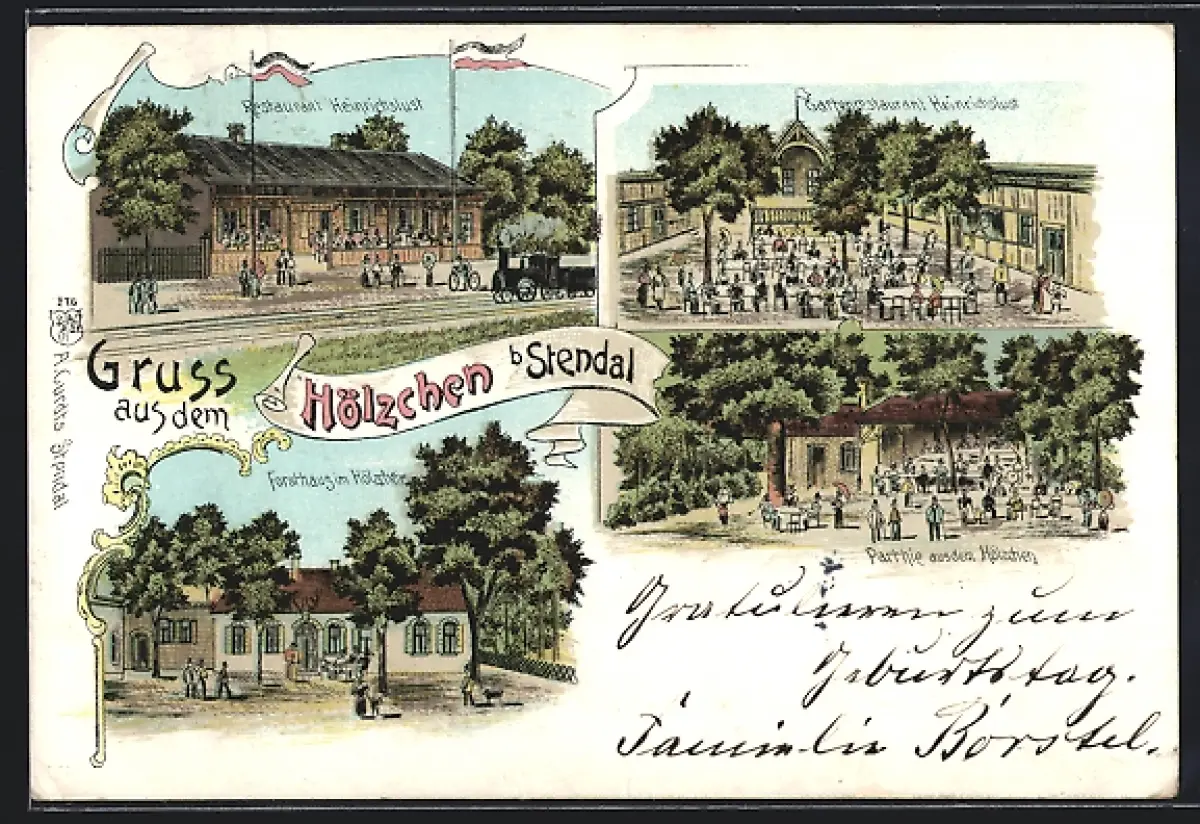 Restaurant Heinrichslust
Gartenrestaurant Heinrichslust
276
Gruss
aus dem
Hölzchen b Stendal
Stendal
Forsthaus im Hölzchen
Parthie aus dem Hölzchen
Gratulieren zum
Geburtstag.
Familie Borstel.